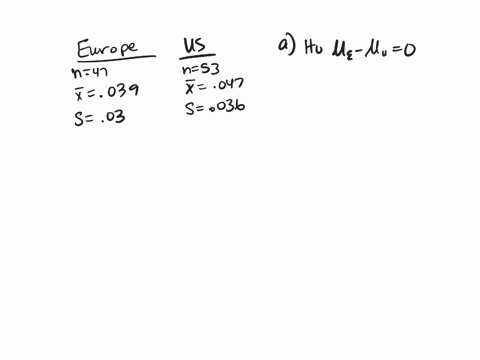 Europe
n=47
x̄=.039
S=.03
US
n=53
x̄=.047
S=.036
a) Ho μE-μu=0